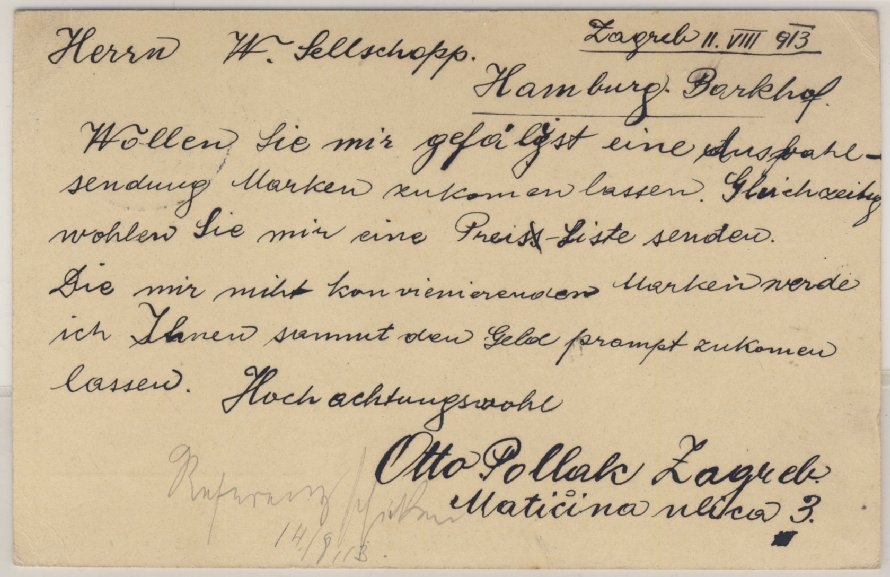 Zagreb 11. VIII 913
Herrn W. Sellschopp.
Hamburg. Barkhof.
Wollen Sie mir gefälligst eine Auswahl-
sendung Marken zukomen lassen. Gleichzeitig
wohlen Sie mir eine Preis-Liste senden.
Die mir niht konvienierenden Marken werde
ich Ihnen sammt den Geld prompt zukomen
lassen. Hochachtungswohl
Otto Pollak Zagreb.
Matičina ulica 3.
Referenz schicken
14/8.13.